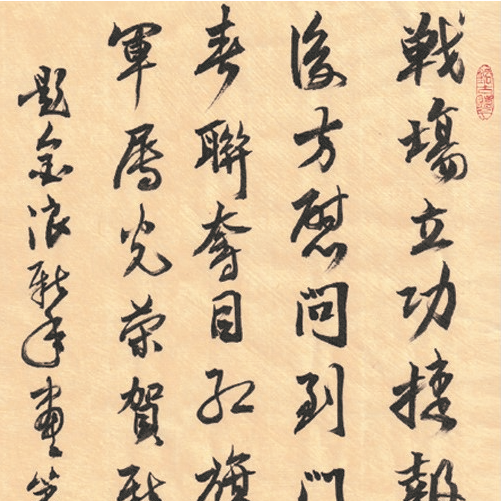 戦場立功捷報
後方慰問到門
春聯奪目紅旗
軍属光荣賀新
題金浪新年畫